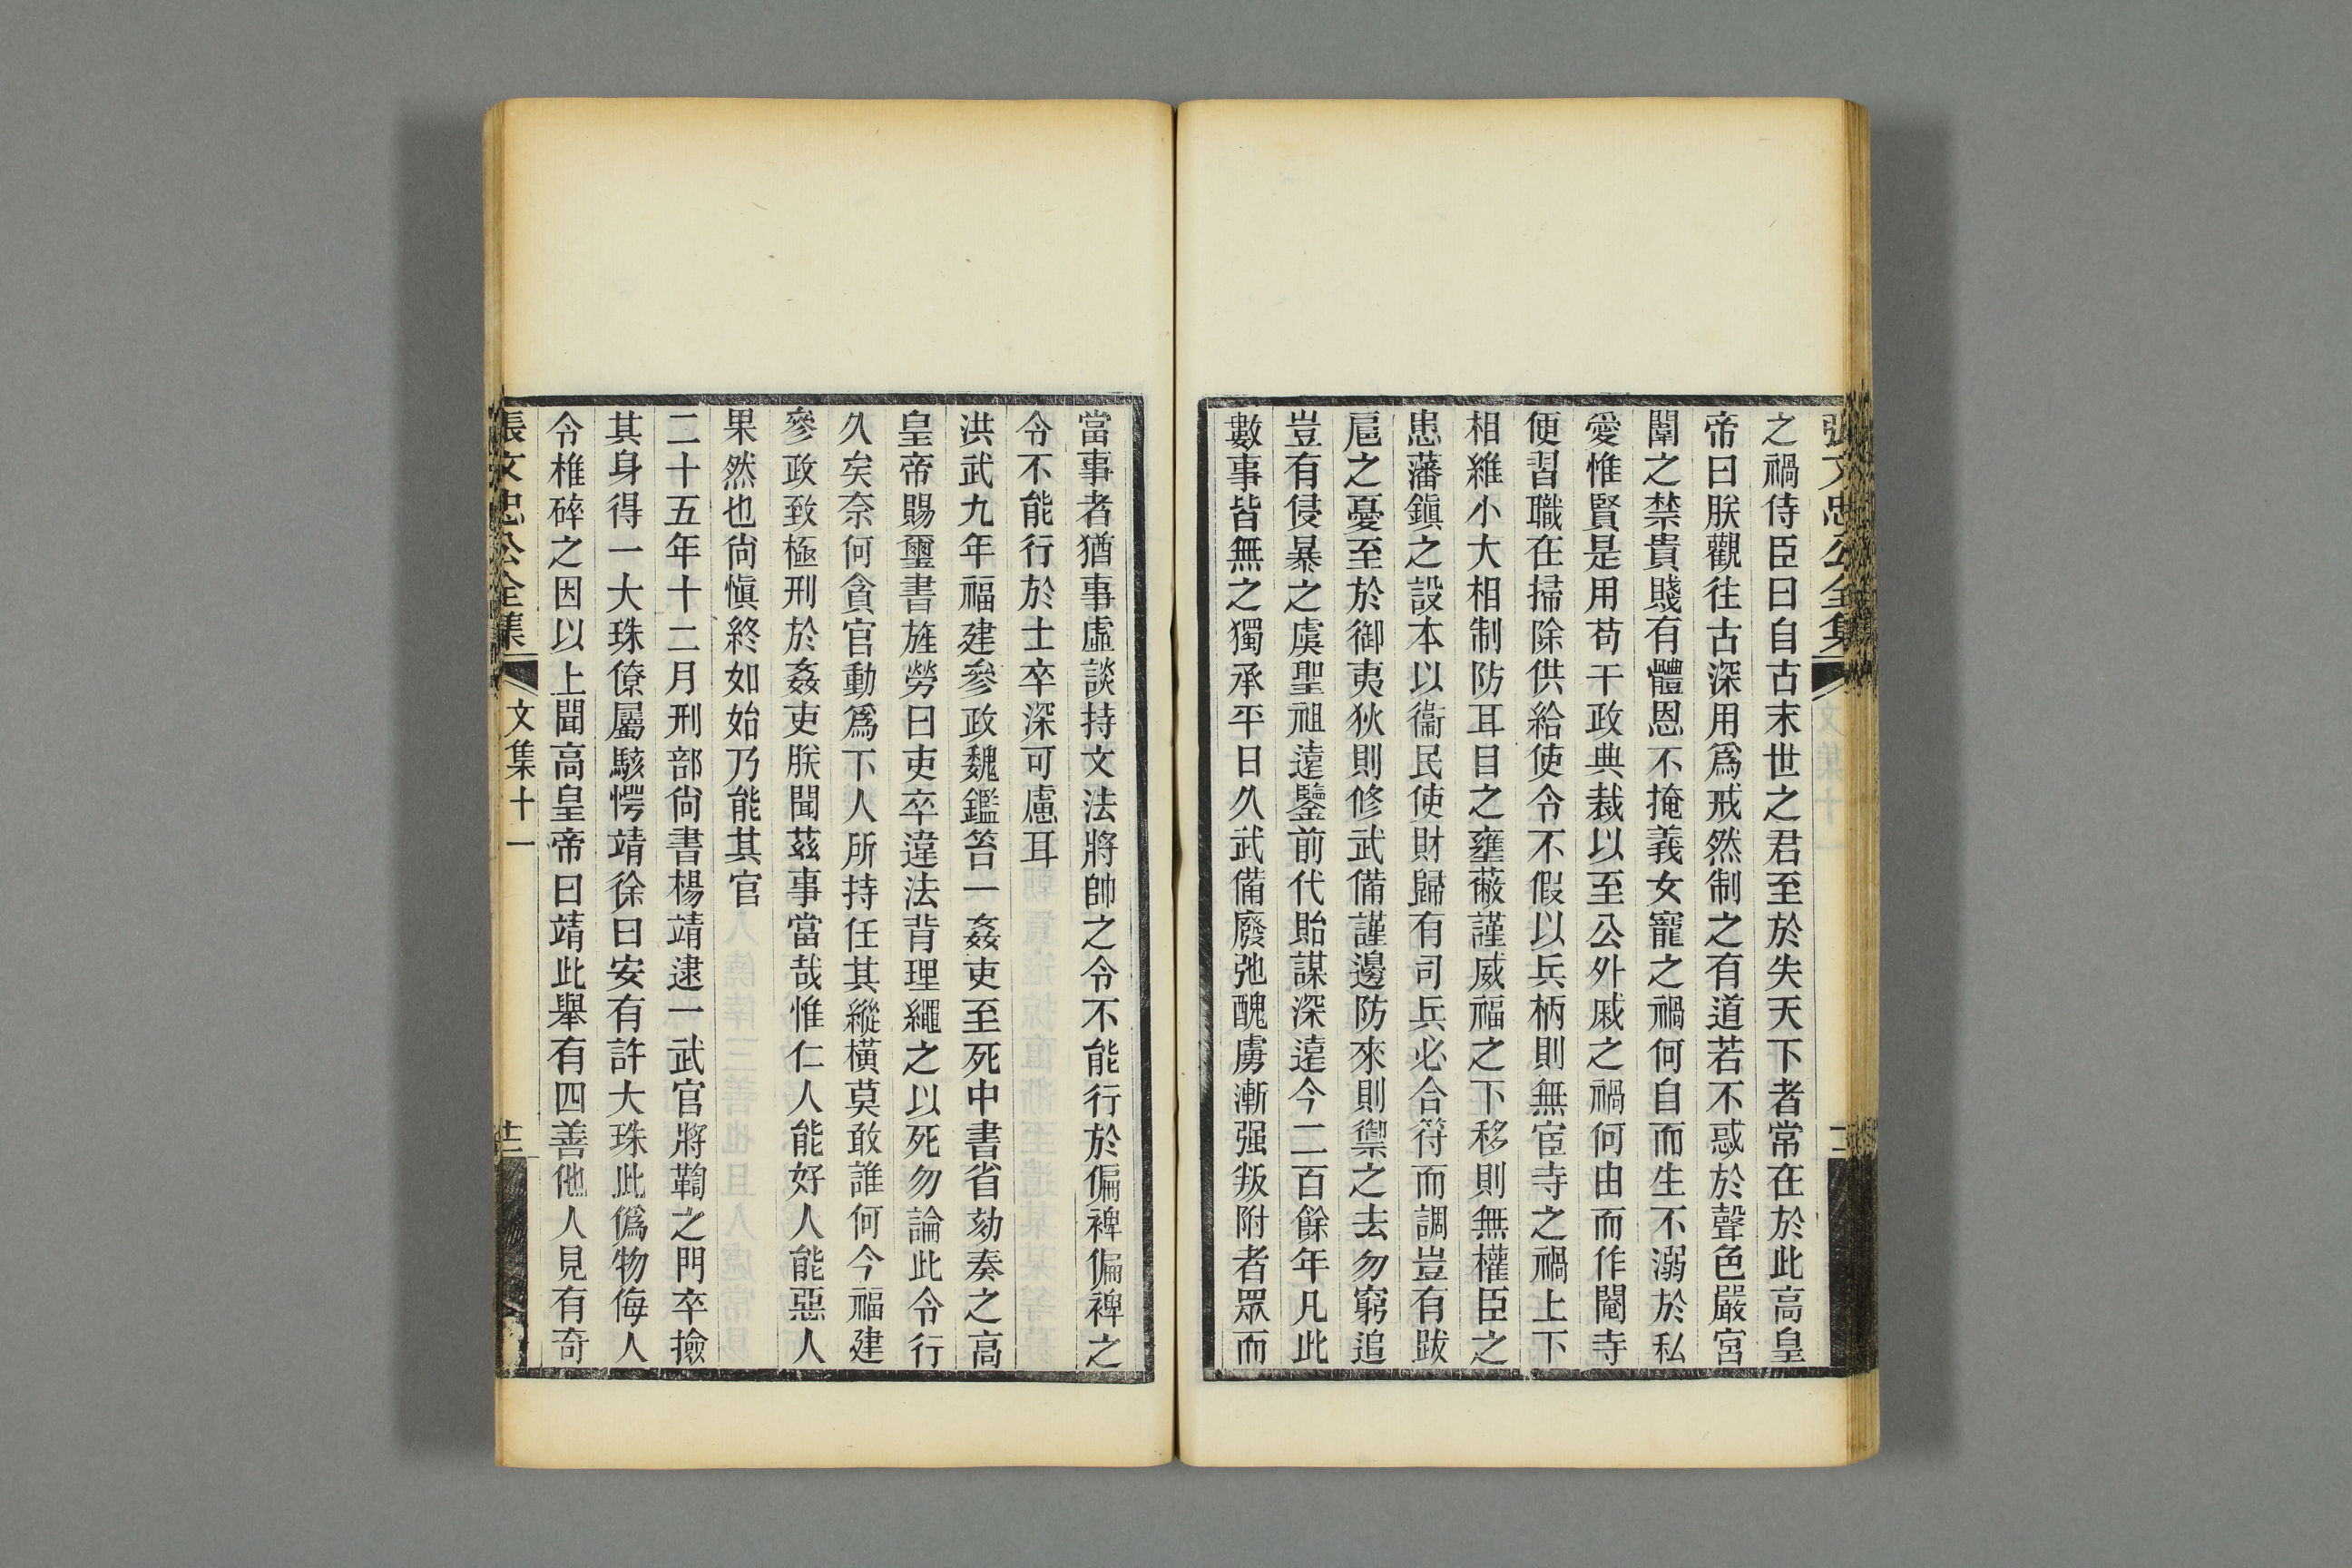 張文忠公全集
之禍侍臣曰自古末世之君至於失天下者常在於此高皇
帝曰朕觀往古深用爲戒然制之有道若不惑於聲色嚴宮
闈之禁貴賤有體恩不掩義女寵之禍何自而生不溺於私
愛惟賢是用苟干政典裁以至公外戚之禍何由而作閹寺
便習職在掃除供給使令不假以兵柄則無宦寺之禍上下
相維小大相制防耳目之壅蔽謹威福之下移則無權臣之
患藩鎭之設本以衞民使財歸有司兵必合符而調豈有跋
扈之憂至於御夷狄則修武備謹邊防來則禦之去勿窮追
豈有侵暴之虞聖祖遠鑒前代貽謀深遠今二百餘年凡此
數事皆無之獨承平日久武備廢弛醜虜漸强叛附者眾而
當事者猶事虛談持文法將帥之令不能行於偏裨偏裨之
令不能行於士卒深可慮耳
洪武九年福建參政魏鑑笞一姦吏至死中書省劾奏之高
皇帝賜璽書旌勞曰吏卒違法背理繩之以死勿論此令行
久矣奈何貪官動爲下人所持任其縱橫莫敢誰何今福建
參政致極刑於姦吏朕聞茲事當哉惟仁人能好人能惡人
果然也尙愼終如始乃能其官
二十五年十二月刑部尙書楊靖逮一武官將鞫之門卒撿
其身得一大珠僚屬駭愕靖徐曰安有許大珠此僞物侮人
令椎碎之因以上聞高皇帝曰靖此舉有四善他人見有奇
張文忠公全集
文集十一